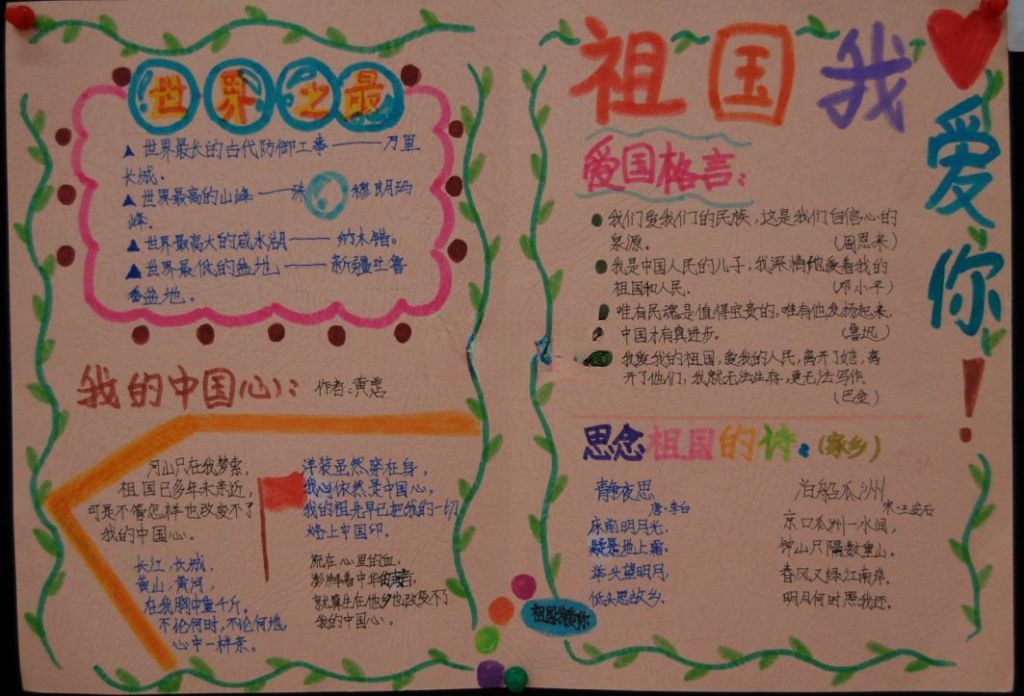 世界之最
▲世界最长的古代防御工事——万里
长城.
▲世界最高的山峰——珠穆朗玛
峰.
▲世界最高大的咸水湖——纳木错。
▲世界最低的盆地——新疆吐鲁
番盆地.
我的中国心:
作者:黄霑
河山只在我梦索,
祖国已多年未亲近,
可是不管怎样也改变不了
我的中国心.
长江,长城,
黄山,黄河,
在我胸中重千斤。
不论何时,不论何地,
心中一样亲。
洋装虽然穿在身,
我心依然是中国心,
我的祖先早已把我的一切
烙上中国印.
流在心里的血,
澎湃着中华的
就算生在他乡也改变不了
我的中国心。
祖国我爱你!
爱国格言:
我们爱我们的民族,这是我们自信心的
泉源。
(周恩来)
我是中国人民的儿子,我深情地爱着我的
祖国和人民.
(邓小平)
唯有民魂是值得宝贵的,唯有他发扬起来,
中国才有真进步。
(鲁迅)
我爱我的祖国,爱我的人民,离开了她,离
开了他们,我就无法生存,更无法写作.
(巴金)
思念祖国的诗:(家乡)
静夜思
唐·李白
床前明月光,
疑是地上霜.
举头望明月,
低头思故乡.
泊船瓜洲
宋·王安石
京口瓜洲一水间,
钟山只隔数重山.
春风又绿江南岸,
明月何时照我还.
祖国我爱你